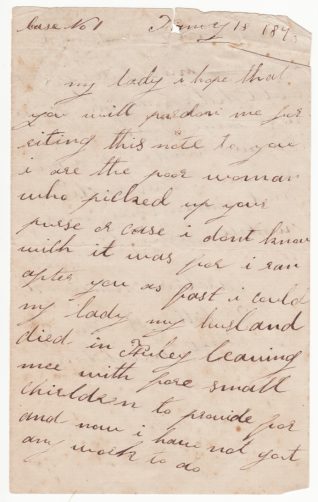 Case No 1 Janry 18 187
my lady i hope that
you will pardon me for
riting this note to you
i are the poor woman
who picked up your
purse or case i dont know
with it was for i ran
after you as fast i could
my lady my husband
died in leaving
mee with fore small
children to provide for
and now i have not got
any work to do